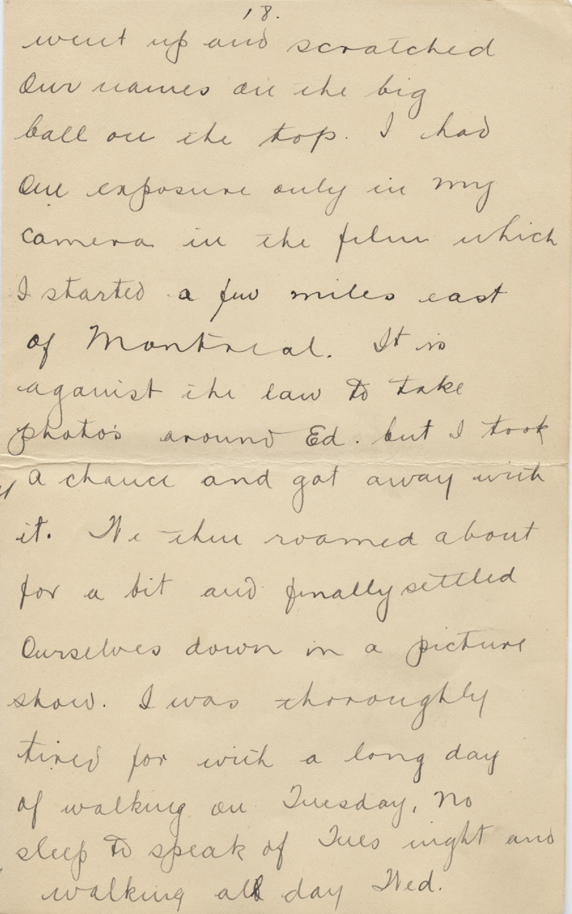 18.
went up and scratched
our names on the big
ball on the top. I had
one exposure only in my
camera in the film which
I started a few miles east
of Montreal. It is
against the law to take
photo's around Ed. but I took
a chance and got away with
it. We then roamed about
for a bit and finally settled
ourselves down in a picture
show. I was thoroughly
tired for with a long day
of walking on Tuesday, no
sleep to speak of Tues night and
walking all day Wed.